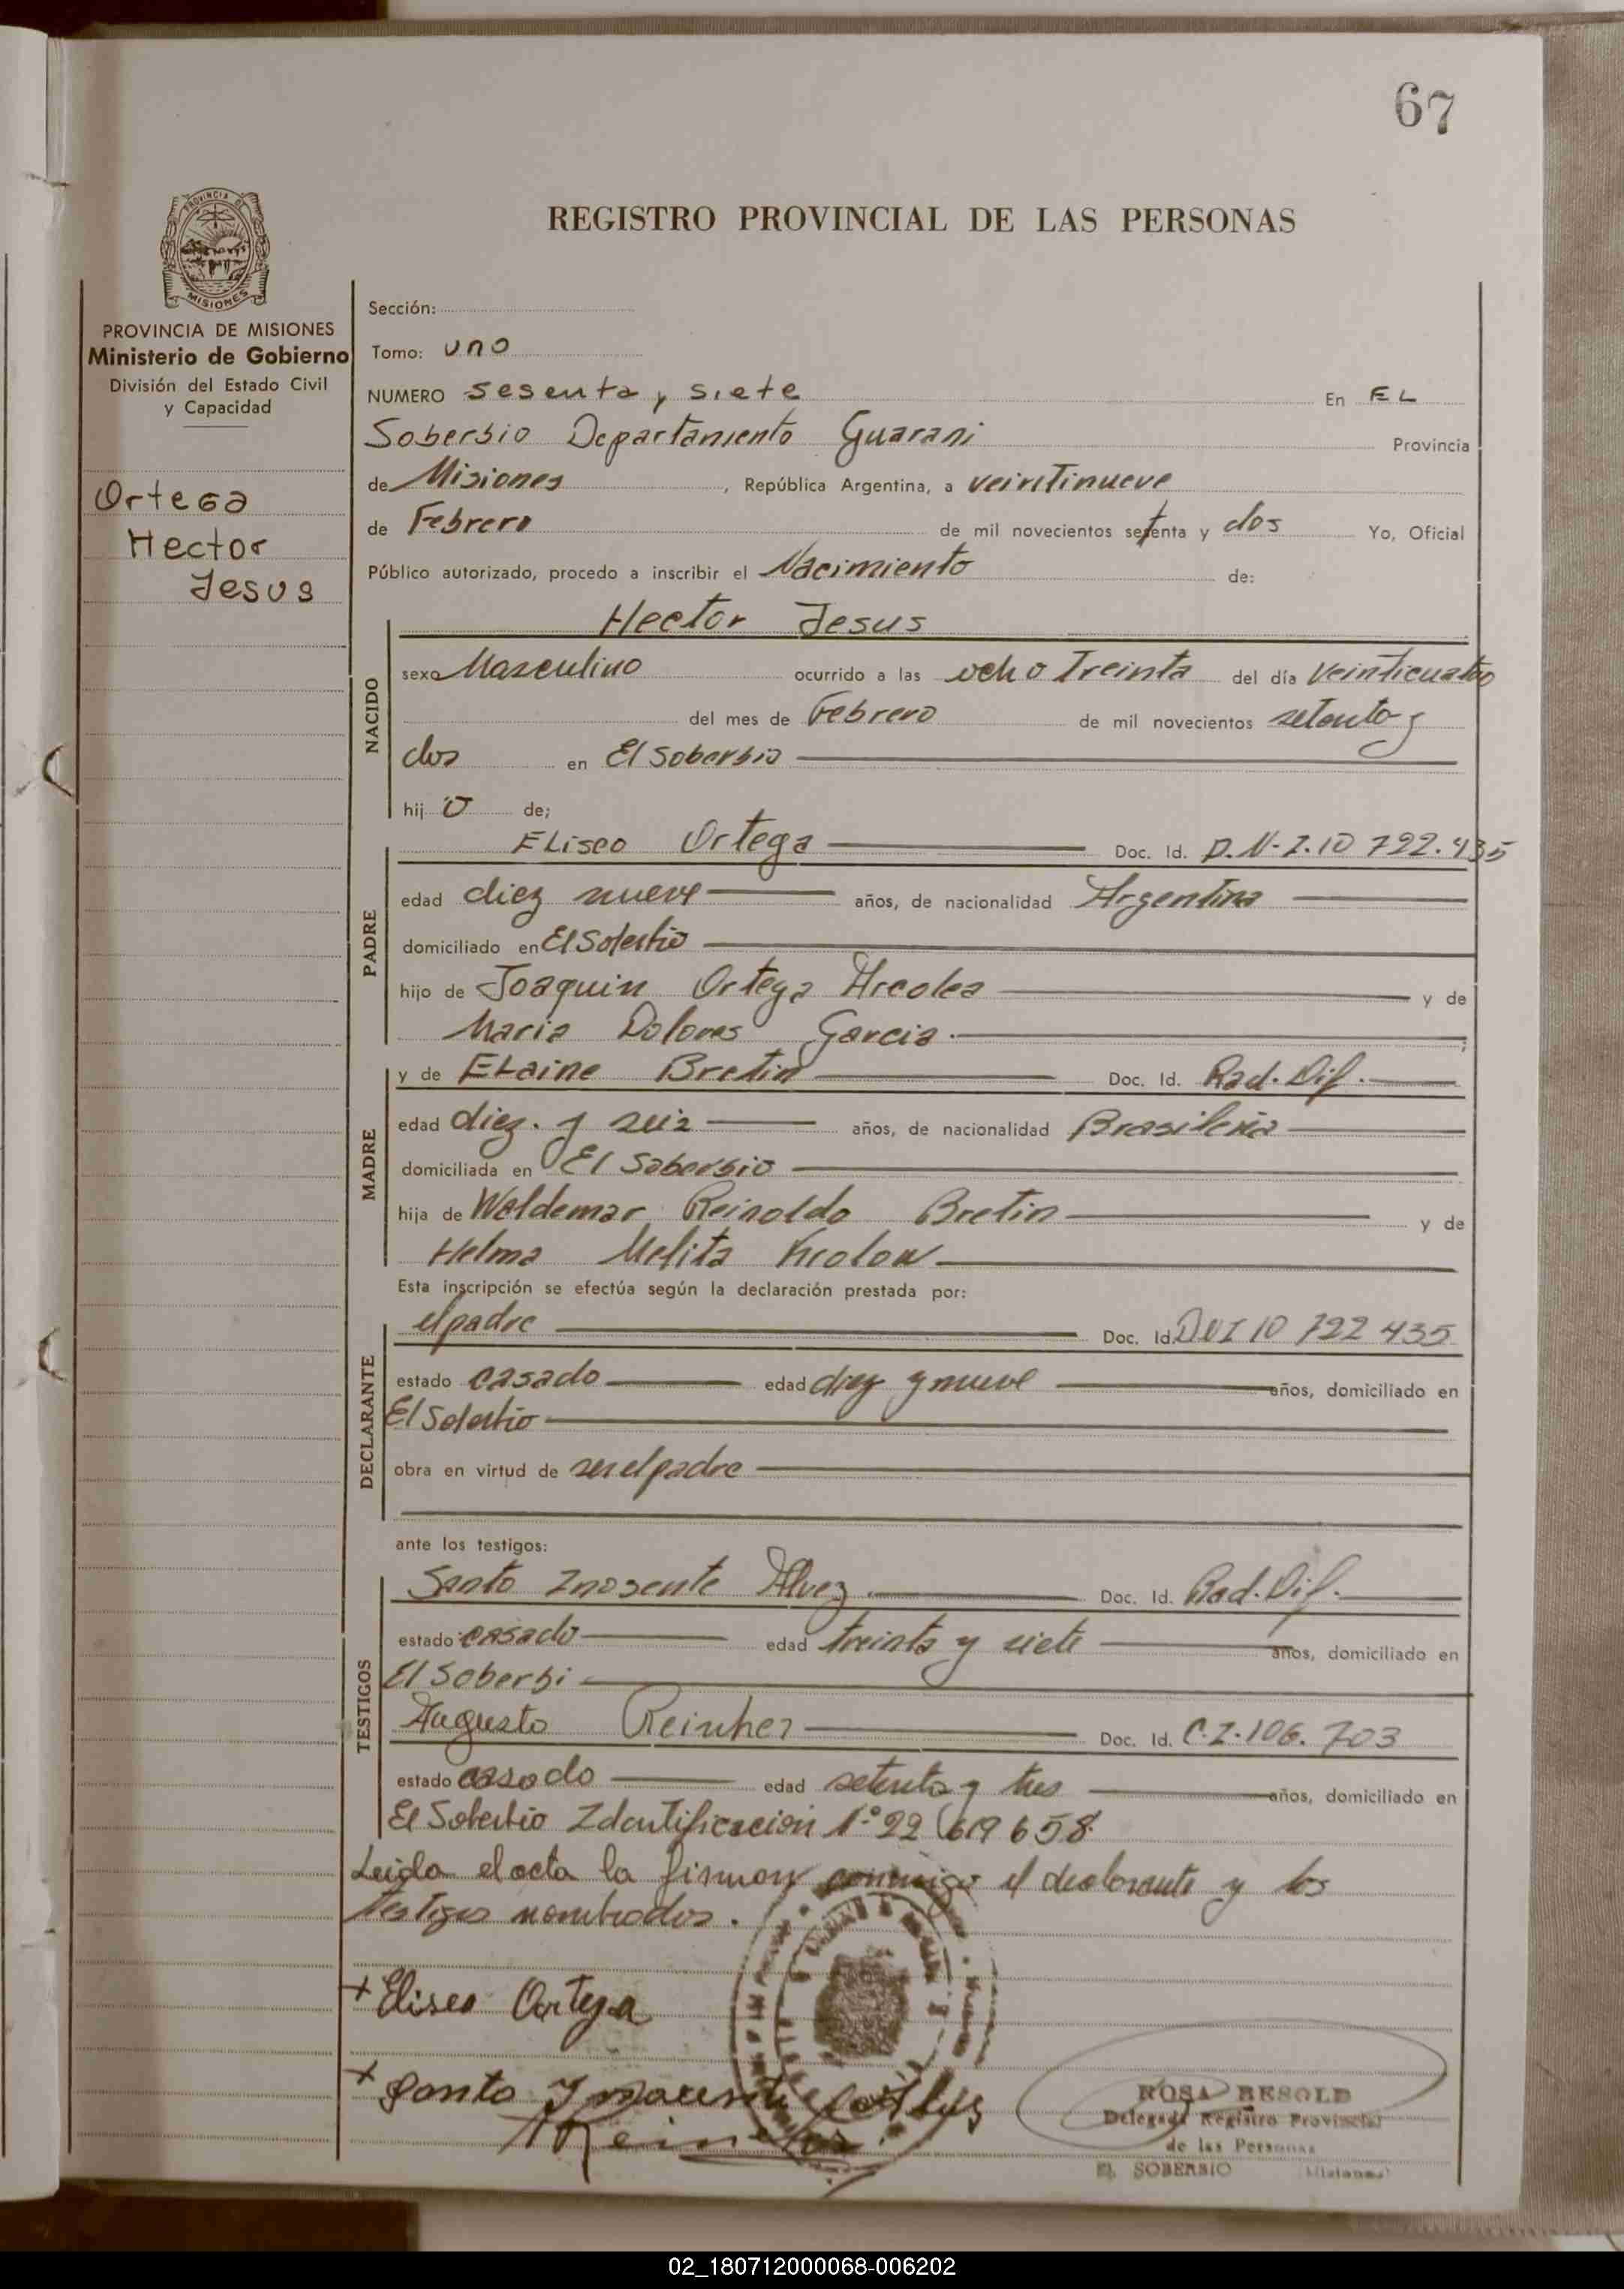 67
REGISTRO PROVINCIAL DE LAS PERSONAS
PROVINCIA DE
MISIONES
PROVINCIA DE MISIONES
Ministerio de Gobierno
División del Estado Civil
y Capacidad
Ortega
Hector
Jesus
Sección:
Tomo: uno
NUMERO sesenta y siete En EL
Soberbio Departamento Guarani Provincia
de Misiones, República Argentina, a veintinueve
de Febrero de mil novecientos setenta y dos Yo, Oficial
Público autorizado, procedo a inscribir el Nacimiento de:
Hector Jesus
NACIDO
sexo Masculino ocurrido a las ocho treinta del día veinticuatro
del mes de Febrero de mil novecientos setenta y
dos en El Soberbio
hij o de;
PADRE
Eliseo Ortega Doc. Id. D.N.I. 10 722.435
edad diez nueve años, de nacionalidad Argentina
domiciliado en El Soberbio
hijo de Joaquin Ortega Arcolea y de
Maria Dolores Garcia.
MADRE
y de Elaine Bretin Doc. Id. Rad. Dif.
edad diez. y seis años, de nacionalidad Brasileña
domiciliada en El Soberbio
hija de Woldemar Reinoldo Bretin y de
Helma Melita
Esta inscripción se efectúa según la declaración prestada por:
DECLARANTE
el padre Doc. Id. DNI 10 722 435
estado casado edad diez y nueve años, domiciliado en
El Soberbio
obra en virtud de ser el padre
ante los testigos:
TESTIGOS
Santo Inosente Alvez Doc. Id. Rad. Dif.
estado casado edad treinta y siete años, domiciliado en
El Soberbi
Augusto Reinher Doc. Id. C.I. 106. 703
estado casado edad setenta y tres años, domiciliado en
El Soberbio Identificacion Nº 22 619 658
Leida el acta la firman conmigo el declarante y los
testigos nombrados.
+ Eliseo Ortega
+ Santo
ROSA BESOLD
Delegada Registro Provincial
de las Personas
EL SOBERBIO (Misiones)
02_180712000068-006202